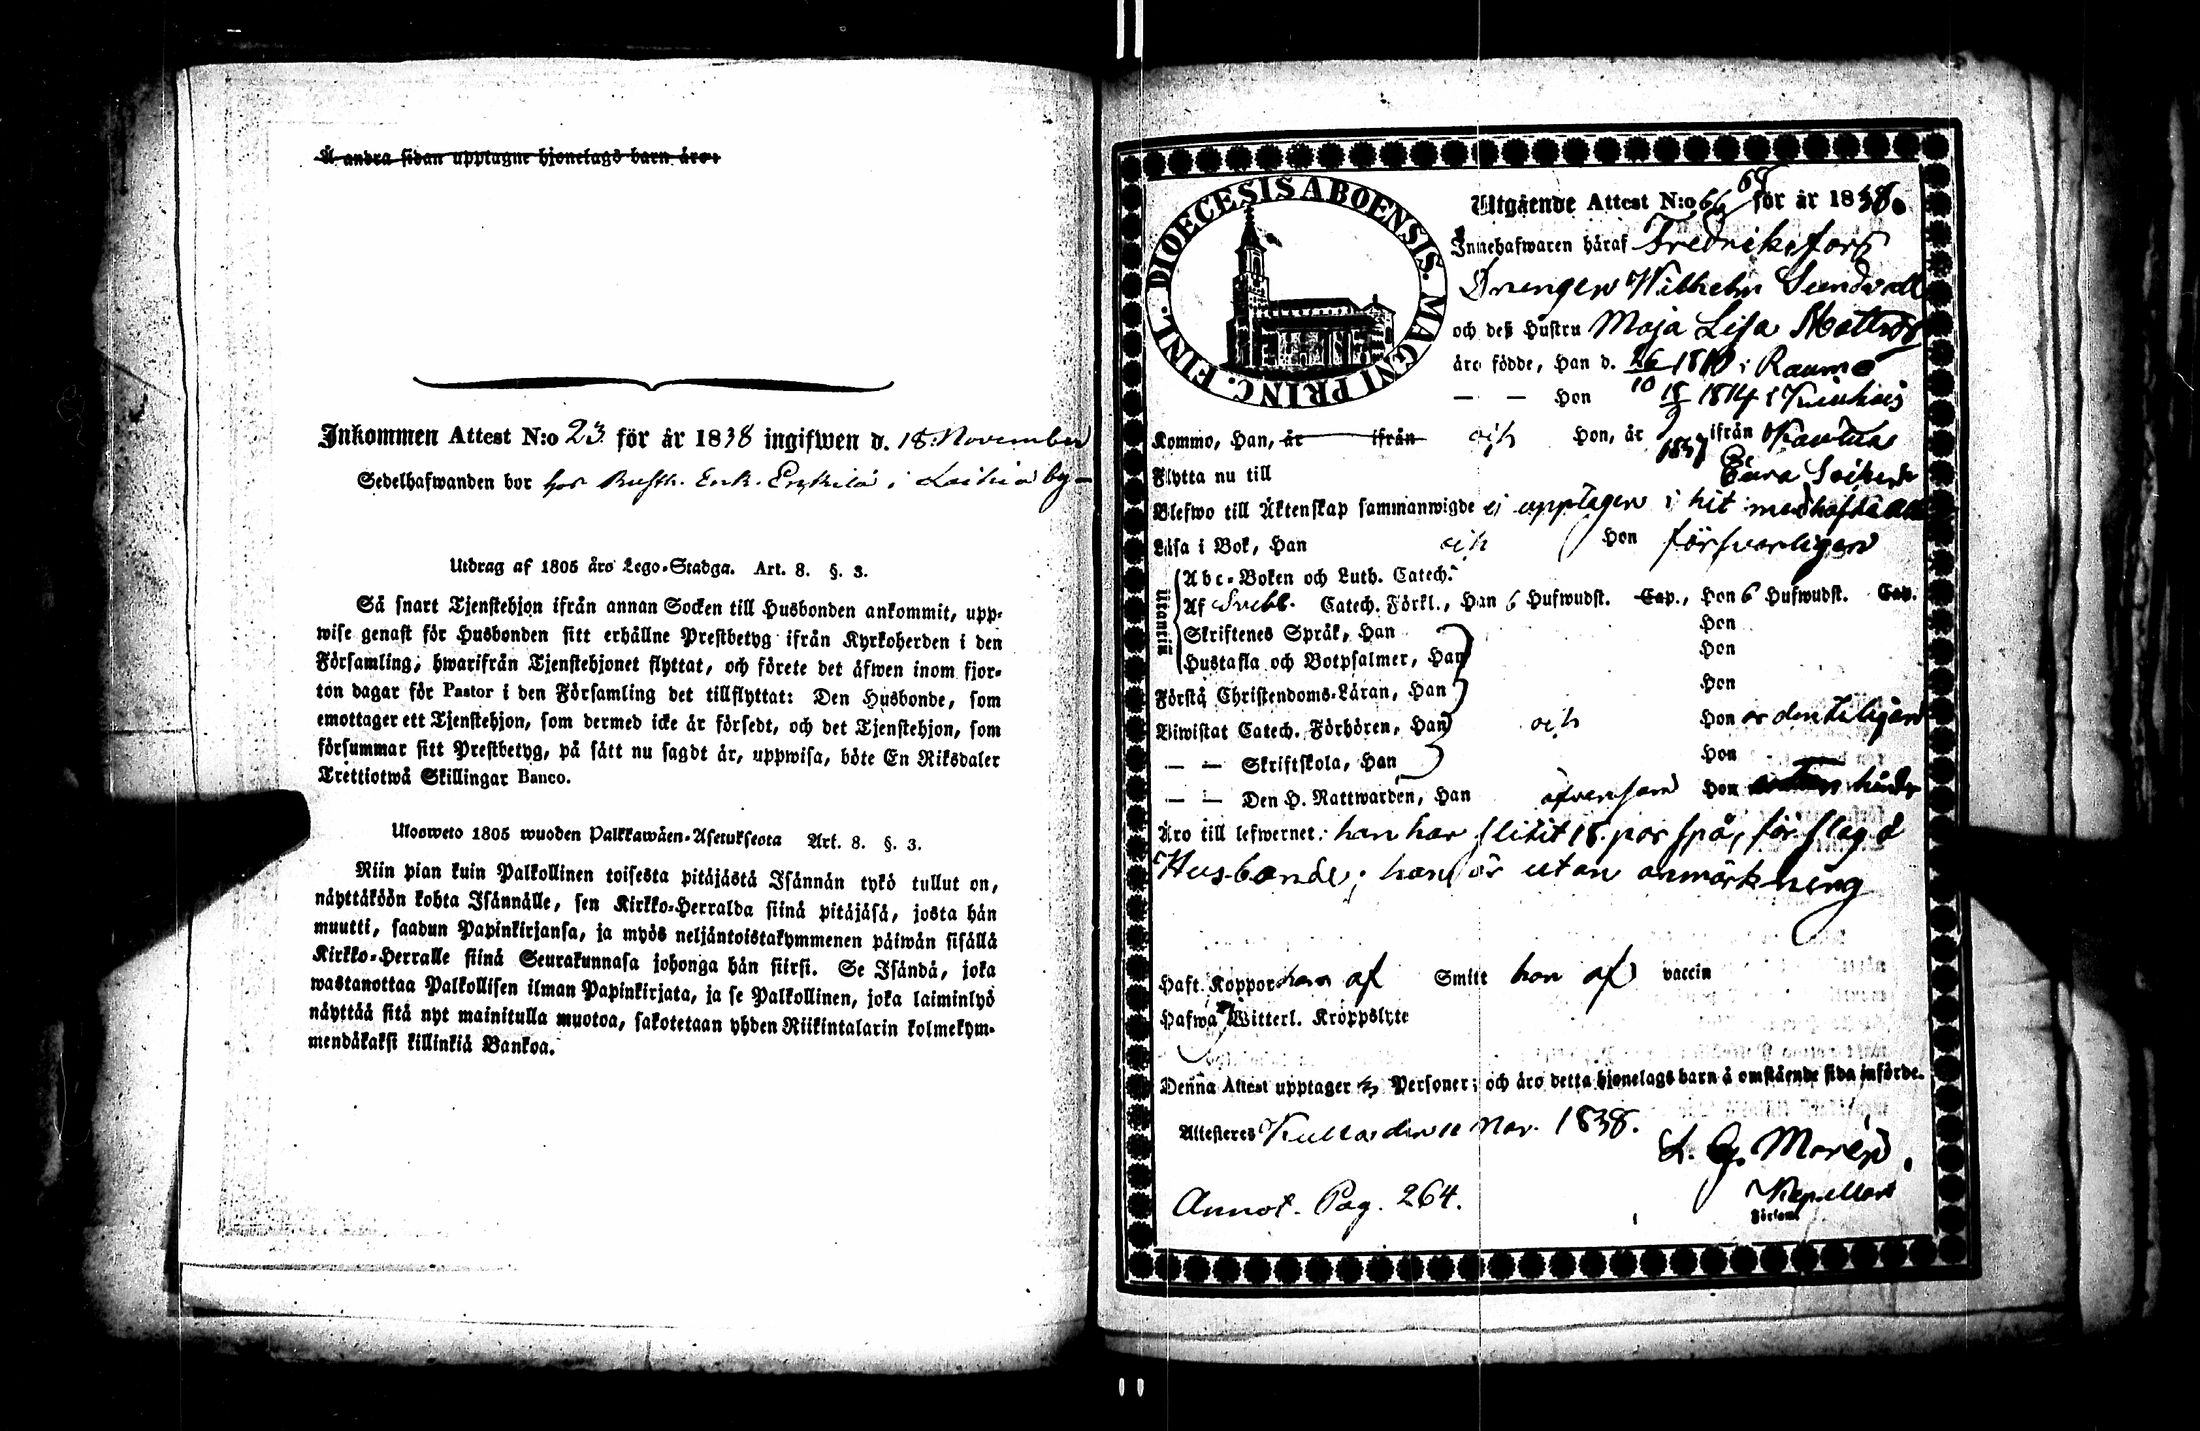 Å andra sidan upptagne hjonelags barn äro:
Inkommen Attest N:o 23 för år 1838 ingifwen d. 18 November
Sedelhafwanden bor hos Rusth. Erik i by
Utdrag af 1805 års Lego-Stadga. Art. 8. §. 3.
Så snart Tjenstehjon ifrån annan Socken till Husbonden ankommit, upp-
wise genast för Husbonden sitt erhållne Prestbetyg ifrån Kyrkoherden i den
Församling, hwarifrån Tjenstehjonet flyttat, och förete det äfwen inom fjor-
ton dagar för Pastor i den Församling det tillflyttat: Den Husbonde, som
emottager ett Tjenstehjon, som dermed icke är försedt, och det Tjenstehjon, som
försummar sitt Prestbetyg, på sätt nu sagdt är, uppwisa, böte En Riksdaler
Trettiotwå Skillingar Banco.
Ulosweto 1805 wuoden Palkkawäen-Asetuksesta Art. 8. §. 3.
Niin pian kuin Palkollinen toisesta pitäjästä Isännän tykö tullut on,
näyttäköön kohta Isännälle, sen Kirkko-Herralda siinä pitäjäsä, josta hän
muutti, saadun Papinkirjansa, ja myös neljäntoistakymmenen päiwän sisällä
Kirkko-Herralle siinä Seurakunnasa johonga hän siirsi. Se Isändä, joka
wastanottaa Palkollisen ilman Papinkirjata, ja se Palkollinen, joka laiminlyö
näyttää sitä nyt mainitulla muotoa, sakotetaan yhden Riikintalarin kolmekym-
mendäkaksi killinkiä Bankoa.
DIOECESIS ABOENSIS. MAGNI PRINC. FINL.
Utgående Attest N:o 66 68 för år 1838.
Innehafwaren häraf Fredriksfors
Drengen Wilhelm Sundvall
och deß Hustru Maja Lisa Mattsdr
äro födde, Han d. 26/10 1810 i Raumo
— — Hon 18/9 1814 i
Kommo, Han, år ifrån och Hon, år 1837 ifrån
Flytta nu till Eura Socken
Blefwo till Äktenskap sammanwigde ej upptagen i hit medhafda
Läsa i Bok, Han och Hon försvarligen
Utantill
Abc-Boken och Luth. Catech.
Af Svebel. Catech. Förkl., Han 6 Hufwudst. Cap., Hon 6 Hufwudst. Cap.
Skriftenes Språk, Han Hon
Hustafla och Botpsalmer, Han Hon
Förstå Christendoms-Läran, Han Hon
Biwistat Catech. Förhören, Han och Hon ordenteligen
— — Skriftskola, Han Hon
— — Den H. Nattwarden, Han äfvensom Hon
Äro till lefwernet: han har slitit 18 par spö, för slag å
Husbonde; hon är utan anmärkning
Haft Koppor han af Smitt hon af vaccin
Hafwa Witterl. Kroppslyte
Denna Attest upptager Personer; och äro detta hjonelags barn å omstående sida införde.
Attesteres Kulla den 11 Nov. 1838.
L. G. Morén,
Kapellans
Församl
Annot. Pag. 264.